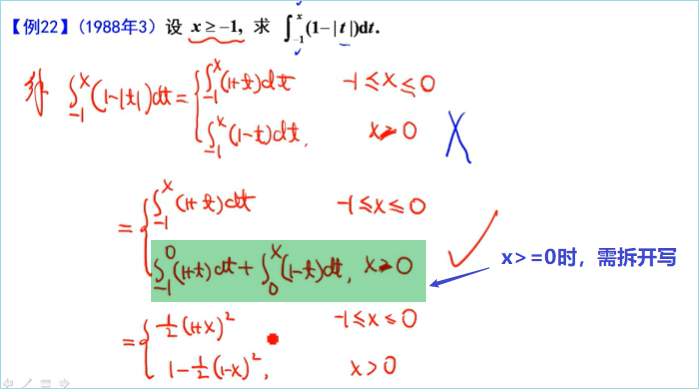 【例22】(1988年3) 设 x ≥ −1, 求 ∫₋₁ˣ (1−|t|)dt.
解 ∫₋₁ˣ (1-|t|)dt = { ∫₋₁ˣ (1+t)dt -1≤x≤0
∫₋₁ˣ (1-t)dt, x>0 X
= { ∫₋₁ˣ (1+t)dt -1≤x≤0
∫₋₁⁰ (1+t)dt + ∫₀ˣ (1-t)dt, x>0 ✓
x>=0时，需拆开写
= { ½(1+x)² -1≤x≤0
1-½(1-x)², x>0